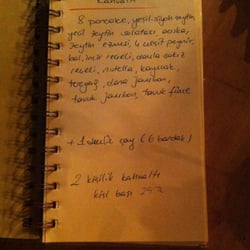 Kahvaltı
8 pancake, yeşil-siyah zeytin
yeşil zeytin salatası, acuka,
zeytin ezmesi, 4 çeşit peynir,
bal, incir reçeli, damla sakız
reçeli, nutella, kaymak,
tereyağ, dana jambon,
tavuk jambon, tavuk füme
+ 1 demlik çay (6 bardak)
2 kişilik kahvaltı
kişi başı 25 TL